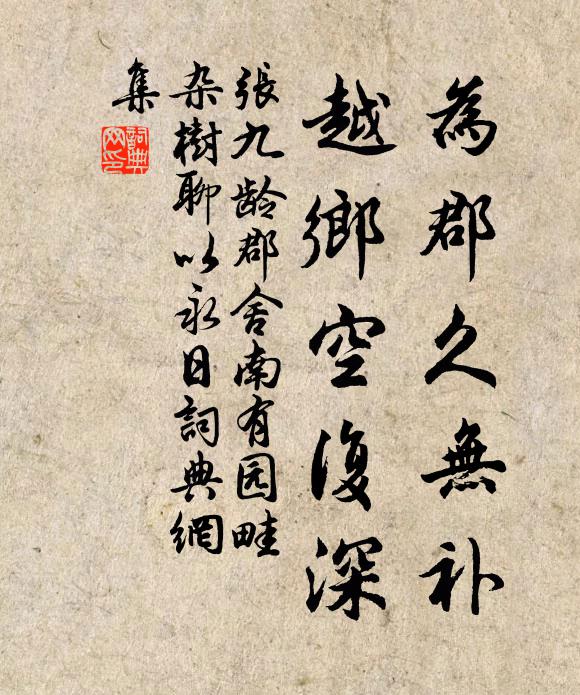 為郡久無补
越鄉空復深
張九龄郡舍南有园畦
杂樹聊以永日詞典網
集
詞典网印